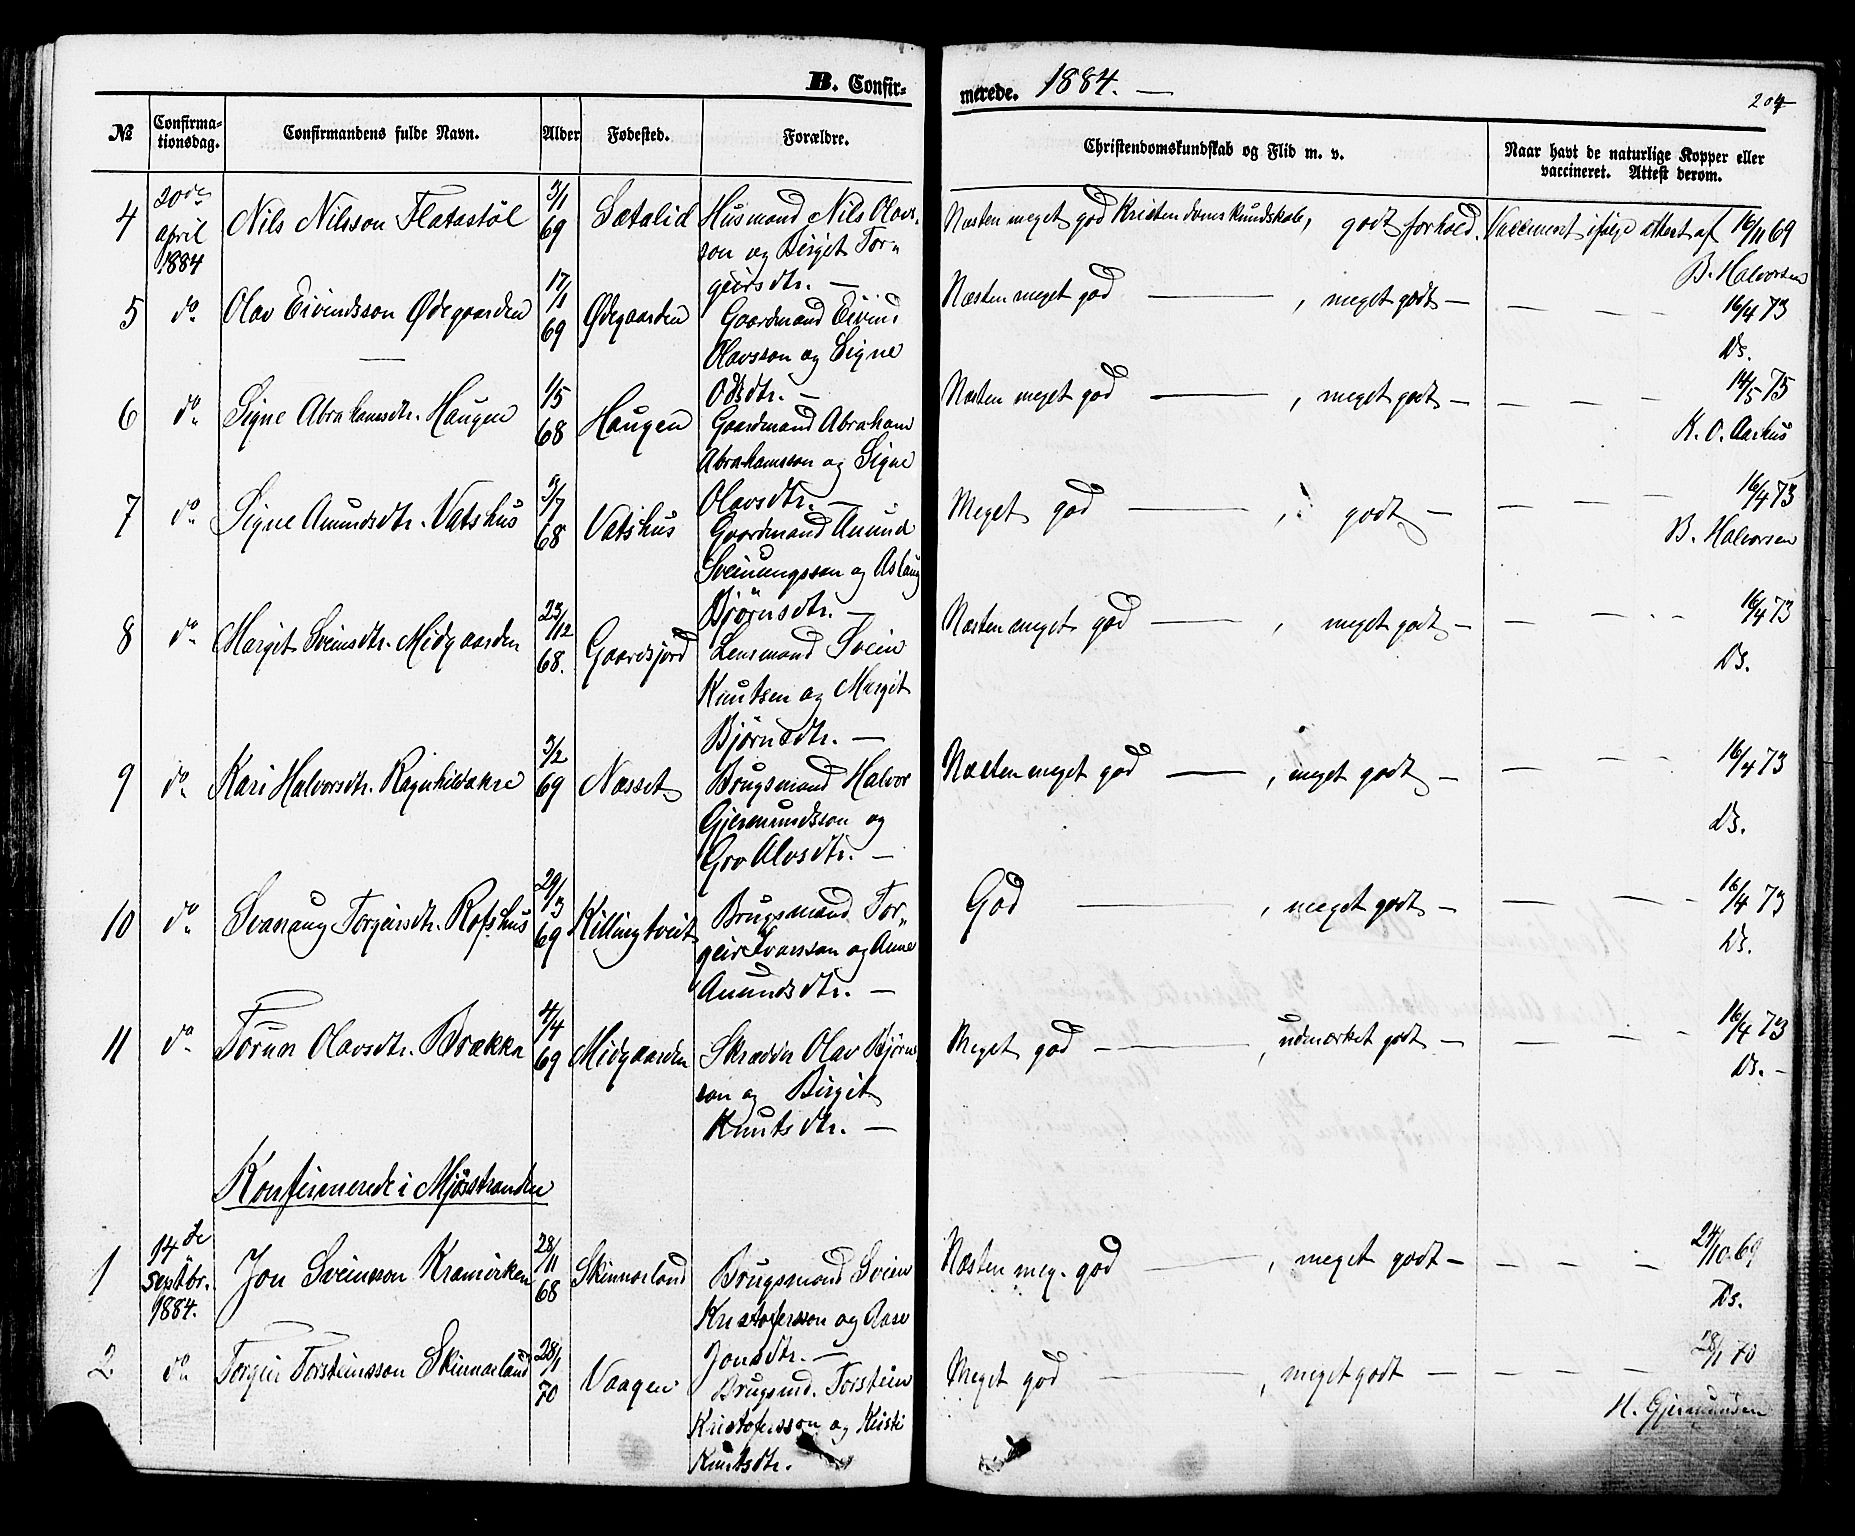 B. Confir-
merede. 1884. —
204
№
Confirma-
tionsdag.
Confirmandens fulde Navn.
Alder
Fødested.
Forældre.
Christendomskundskab og Flid m. v.
Naar havt de naturlige Kopper eller
vaccineret. Attest derom.
4 20de april 1884 Nils Nilsson Flatastøl 3/1 69 Sætalid Husmand Nils Olavs-
son og Birgit Tor-
geirsdtr. —
Næsten meget god Kristendomskundskab, godt forhold. Vaccineret ifølge attest af 16/11 69
B. Halvorsen
5 do Olav Eivindsson Ødegaarden 17/1 69 Ødegaarden Gaardmand Eivind
Olavsson og Signe
Odsdtr. —
Næsten meget god — , meget godt — — — — 16/4 73
Ds.
6 do Signe Abrahamsdtr. Haugen 1/5 68 Haugen Gaardmand Abraham
Abrahamsson og Signe
Olavsdtr. —
Næsten meget god — , meget godt — — — — 14/5 75
K. O. Aarhus
7 do Signe Anundsdtr. Vatshus 3/7 68 Vatshus Gaardmand Anund
Sveinungsson og Aslaug
Bjørnsdtr. —
Meget god — , godt — — — — 16/4 73
B. Halvorsen
8 do Margit Sveinsdtr. Midgaarden 23/12 68. Gaardsjord Lensmand Svein
Knutsen og Margit
Bjørnsdtr. —
Næsten meget god — , meget godt — — — — 16/4 73
Ds.
9 do Kari Halvorsdtr. Ragnhildakre 3/2 69 Næsset Brugsmand Halvor
Gjermundsson og
Gro Alvsdtr. —
Næsten meget god — , meget godt — — — — 16/4 73
Ds.
10 do Svanaug Torgeirsdtr. Rofshus 29/3 69 Killingtveit Brugsmand Tor-
geir Ivarsson og Anne
Anundsdtr. —
God — , meget godt — — — — 16/4 73
Ds.
11 do Torun Olavsdtr. Brækka 4/4 69 Midgaarden Skrædder Olav Bjørns-
son og Birgit
Knutsdtr. —
Meget god — , udmærket godt — — — — 16/4 73
Ds. —
Konfirmerede i Mjøsstranden
1 14de Septbr. 1884. Jon Sveinsson Kramvirken 28/11 68 Skinnarland Brugsmand Svein
Kristofersson og Aase
Jonsdtr. —
Næsten meg. god — , meget godt — — — — 24/10 69
Ds.
2 do Torgeir Torsteinsson Skinnarland 28/1 70 Vaagen Brugsmd. Torstein
Kristofersson og Kristi
Knutsdtr.
Meget god — , meget godt — — — — 28/1 70
H. Gjermundsen